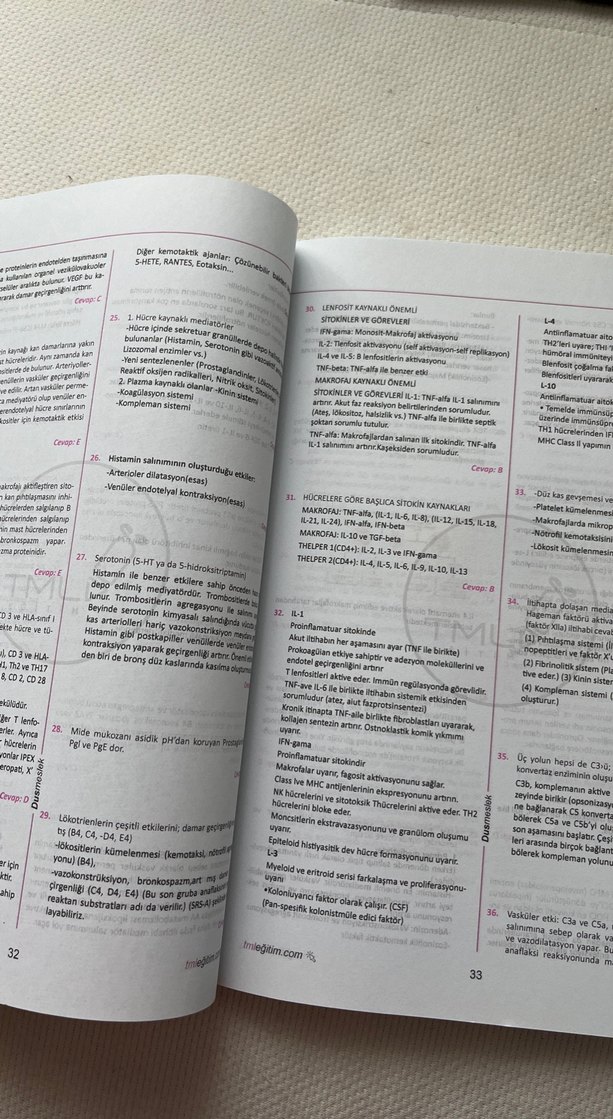 e proteinlerin endotelden taşınmasına
a kullanılan organel vezikülovakuoler
selüler aralıkta bulunur. VEGF bu ka-
rarak damar geçirgenliğini arttırır.
Cevap: C
in kaynağı kan damarlarına yakın
t hücreleridir. Aynı zamanda kan
sitlerde de bulunur. Arteriyoller-
enüllerin vasküler geçirgenliğini
ve edilir. Artan vasküler perme-
ca mediyatörü olup venüler en-
erendotelyal hücre sınırlarının
kositler için kemotaktik etkisi
Cevap: E
akrofaj aktifleştiren sito-
n kan pıhtılaşmasını inhi-
hücrelerden salgılanıp B
ücrelerinden salgılanıp
in mast hücrelerinden
bronkospazm yapar.
zma proteinidir.
Cevap: E
CD 3 ve HLA-sınıf I
ekte hücre ve tü-
), CD 3 ve HLA-
H1, Th2 ve TH17
8, CD 2, CD 28
ekülüdür.
ğer T lenfo-
erler. Ayrıca
hücrelerin
yonlar IPEX
eropati, X'
Cevap: D
er için
ktir.
ahip
32
Dusmeslek
Diğer kemotaktik ajanlar: Çözünebilir
5-HETE, RANTES, Eotaksin...
25. 1. Hücre kaynaklı mediatörler
-Hücre içinde sekretuar granüllerde depo
bulunanlar (Histamin, Serotonin gibi
Lizozomal enzimler vs.)
-Yeni sentezlenenler (Prostaglandinler,
Reaktif oksijen radikalleri, Nitrik oksit,
2. Plazma kaynaklı olanlar -Kinin sistemi
-Koagülasyon sistemi
-Kompleman sistemi
26. Histamin salınımının oluşturduğu etkiler:
-Arterioler dilatasyon(esas)
-Venüler endotelyal kontraksiyon(esas)
27. Serotonin (5-HT ya da 5-hidroksitriptamin)
Histamin ile benzer etkilere sahip önceden
depo edilmiş mediyatördür. Trombositlerde
lunur. Trombositlerin agregasyonu ile salını
Beyinde serotonin kimyasalı salındığında
kas arterolleri hariç vazokonstriksiyon meydana
Histamin gibi postkapiller venüllerde venüler
kontraksiyon yaparak geçirgenliği artırır. Önemli
den biri de bronş düz kaslarında kasılma
28. Mide mukozanı asidik pH'dan koruyan
PgI ve PgE dor.
29. Lökotrienlerin çeşitli etkilerini; damar
tş (B4, C4, -D4, E4)
-lökositlerin kümelenmesi (kemotaksi, nötrofil
yonu) (B4),
-vazokonstrüksiyon, bronkospazm,art mış
çirgenliği (C4, D4, E4) (Bu son gruba
reaktan substratları adı da verilir.) (SRS-A)
layabiliriz.
tmleğitim.com
30. LENFOSİT KAYNAKLI ÖNEMLİ
SİTOKİNLER VE GÖREVLERİ
IFN-gama: Monosit-Makrofaj aktivasyonu
IL-2: Tlenfosit aktivasyonu (self aktivasyon-self replikasyon)
IL-4 ve IL-5: B lenfositlerin aktivasyonu
TNF-beta: TNF-alfa ile benzer etki
MAKROFAJ KAYNAKLI ÖNEMLİ
SİTOKİNLER VE GÖREVLERİ IL-1: TNF-alfa IL-1 salınımını
artırır. Akut faz reaksiyon belirtilerinden sorumludur.
(Ateş, lökositoz, halsizlik vs.) TNF-alfa ile birlikte septik
şoktan sorumlu tutulur.
TNF-alfa: Makrofajlardan salınan ilk sitokindir. TNF-alfa
IL-1 salınımını artırır.Kaşeksiden sorumludur.
Cevap: B
31. HÜCRELERE GÖRE BAŞLICA SİTOKİN KAYNAKLARI
MAKROFAJ: TNF-alfa, (IL-1, IL-6, IL-8), (IL-12, IL-15, IL-18,
IL-21, IL-24), IFN-alfa, IFN-beta
MAKROFAJ: IL-10 ve TGF-beta
THELPER 1(CD4+): IL-2, IL-3 ve IFN-gama
THELPER 2(CD4+): IL-4, IL-5, IL-6, IL-9, IL-10, IL-13
Cevap: B
32. IL-1
Proinflamatuar sitokinde
Akut iltihabın her aşamasını ayar (TNF ile birlikte)
Prokoagülan etkiye sahiptir ve adezyon moleküllerini ve
endotel geçirgenliğini artırır
T lenfositleri aktive eder. Immün regülasyonda görevlidir.
TNF-ave IL-6 ile birlikte iltihabın sistemik etkisinden
sorumludur (atez, aiut fazprotsinsentezi)
Kronik itinapta TNF-aile birlikte fibroblastları uyararak,
kollajen sentezin artırır. Ostnoklastik komik yıkımı
uyarır.
IFN-gama
Proinflamatuar sitokindir
Makrofalar uyarır, fagosit aktivasyonunu sağlar.
Class Ive MHC antijenlerinin ekspresyonunu artırın.
NK hücrelerini ve sitotoksik Thücrelerini aktive eder. TH2
hücrelerini bloke eder.
Moncsitlerin ekstravazasyonunu ve granülom oluşumu
uyarır.
Epiteloid histiyasitik dev hücre formasyonunu uyarır.
L-3
Myeloid ve eritroid serisi farkılaşma ve proliferasyonu-
uyarı
•Koloniuyarıcı faktor olarak çalışır. (CSF)
(Pan-spesifik kolonistmüle edici faktör)
tmleğitim.com
33
Dusmeslek
L-4
Antiinflamatuar sito
TH2'leri uyarır; TH
hümöral immüniteyi
Blenfosit çoğalma fak
Blenfositleri uyararak
L-10
Antiinflamatuar sitok
• Temelde immünsü
üzerinde immünsüpr
TH1 hücrelerinden IF
MHC Class II yapımın
33. -Düz kas gevşemesi ve
-Platelet kümelenmesi
-Makrofajlarda mikrop
-Nötrofil kemotaksisini
-Lökosit kümelenmesin
34. İltihapta dolaşan media
Hageman faktörü aktiva
(faktör XIIa) iltihabi ceva
(1) Pıhtılaşma sistemi (İl
nopeptitleri ve faktör X'u
(2) Fibrinolitik sistem (Pla
tive eder.) (3) Kinin sistem
(4) Kompleman sistemi (
oluşturur.)
35. Üç yolun hepsi de C3›ü;
konvertaz enziminin oluşu
C3b, komplemanın aktive
zeyinde birikir (opsonizasy
ne bağlanarak C5 konverta
bölerek C5a ve C5b'yi olu
son aşamasını başlatır. Çeşi
leri arasında birçok bağlant
bölerek kompleman yolunu
36. Vasküler etki: C3a ve C5a,
salınımına sebep olarak va
ve vazodilatasyon yapar. Bu
anaflaksi reaksiyonunda m